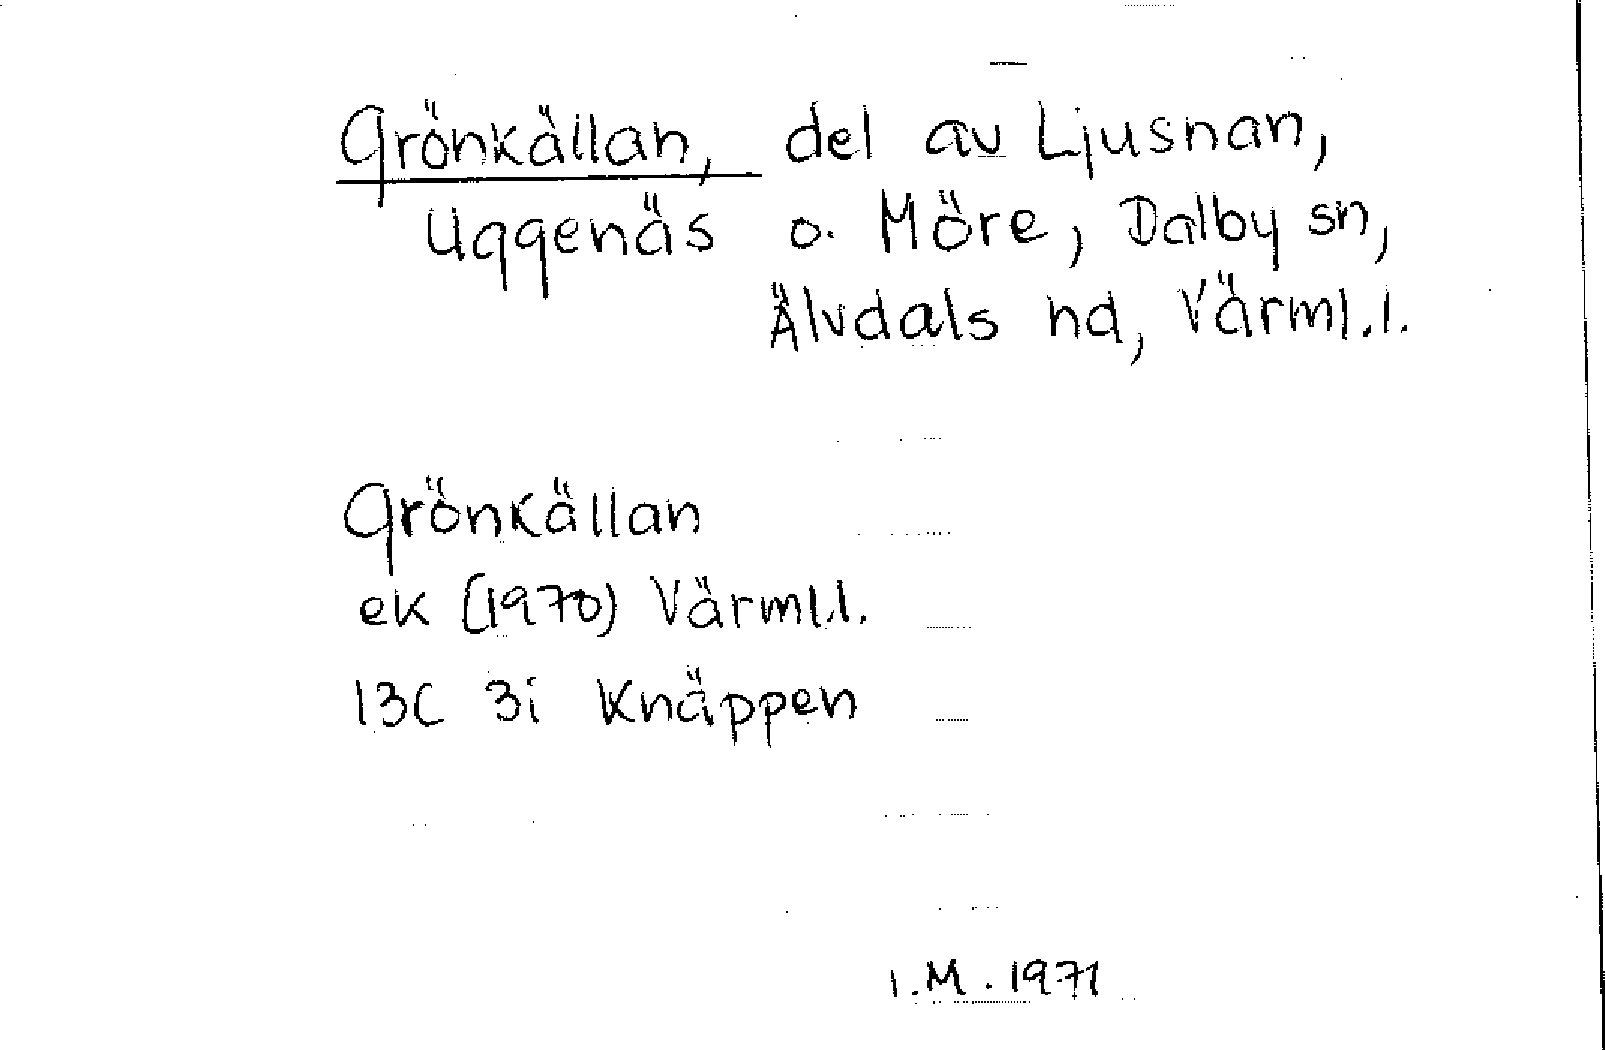 Grönkällan, del av Ljusnan,
Uggenäs o. Möre, Dalby sn,
Älvdals hd, Värml.l.
Grönkällan
ek (1970) Värml.l.
13C 3i Knäppen
I.M. 1971